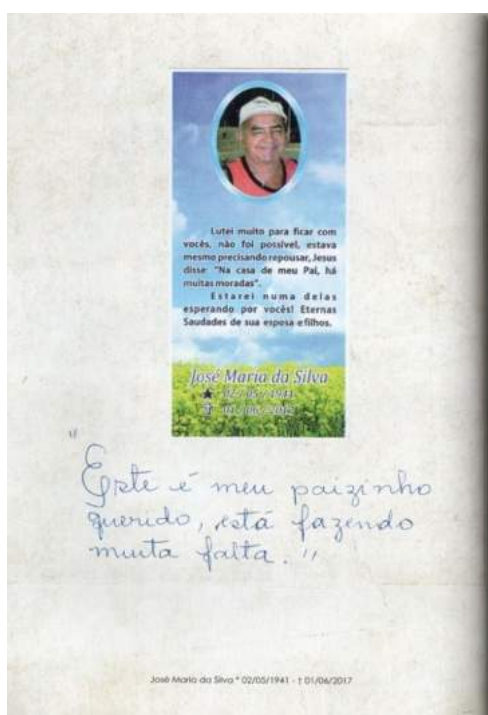 Lutei muito para ficar com
vocês, não foi possível, estava
mesmo precisando repousar, Jesus
disse: "Na casa de meu Pai, há
muitas moradas".
Estarei numa delas
esperando por vocês! Eternas
Saudades de sua esposa e filhos.
José Maria da Silva
★ 02 / 05 / 1941
✝ 01 / 06 / 2017
"Este é meu paizinho
querido, está fazendo
muita falta."
José Maria da Silva * 02/05/1941 - † 01/06/2017